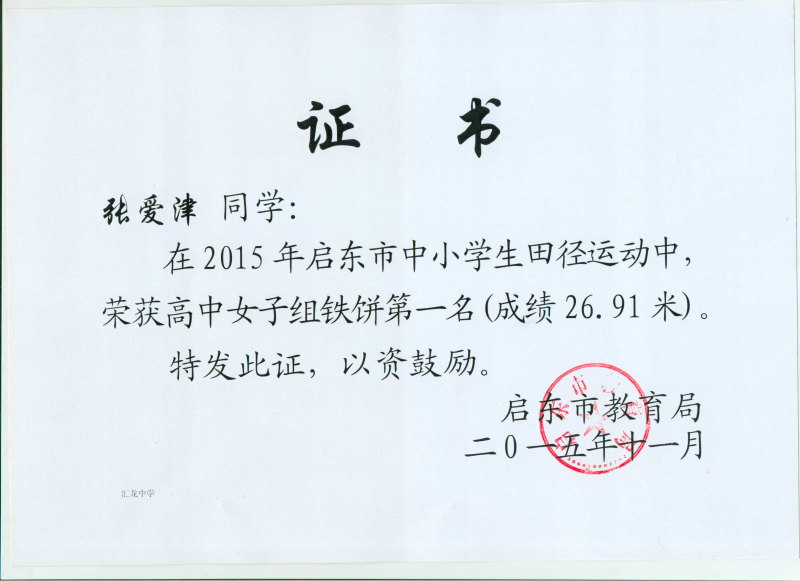 证 书
张爱津 同学：
在 2015 年启东市中小学生田径运动中，
荣获高中女子组铁饼第一名(成绩 26.91 米)。
特发此证，以资鼓励。
启东市教育局
二0一五年十一月
汇龙中学